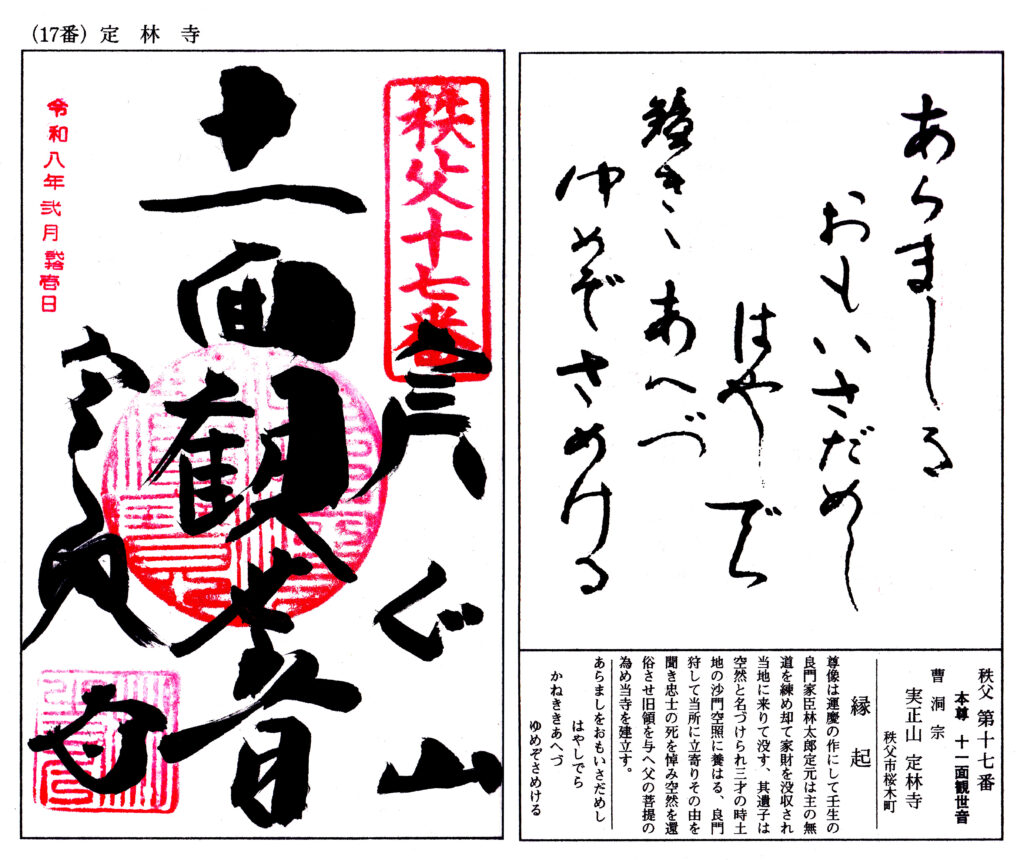 （17番）定 林 寺
秩父十七番
十一面観世音
令和八年弐月
壱日
あらましを
おもいさだめし
はやしでら
鐘きゝあへづ
ゆめぞさめける
秩父 第十七番
本尊 十一面観世音
曹 洞 宗
実正山 定林寺
秩父市桜木町
縁 起
尊像は運慶の作にして壬生の
良門家臣林太郎定元は主の無
道を練め却て家財を没収され
当地に来りて没す、其遺子は
空然と名づけられ三才の時土
地の沙門空照に養はる、良門
狩して当所に立寄りその由を
聞き忠士の死を悼み空然を還
俗させ旧領を与へ父の菩提の
為め当寺を建立す。
あらましをおもいさだめし
はやしでら
かねききあへづ
ゆめぞさめける